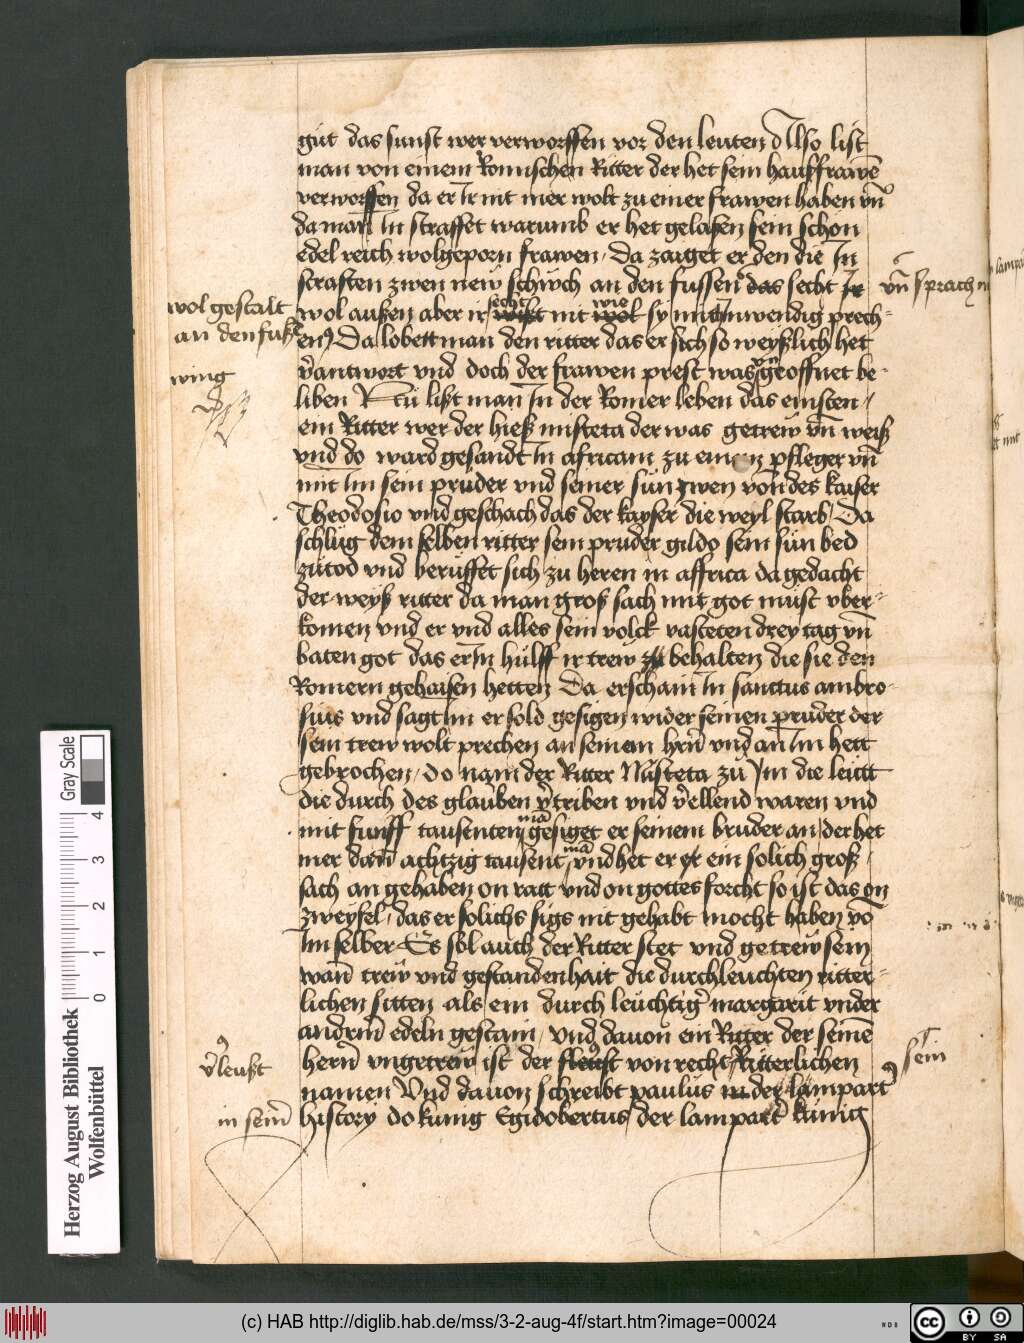 gut das sunst wer verworffen vor den leuten Also list
man von einem Romischen Ritter der het sein hausfrawē
verworffen da er Ir nit mer wolt zu einer frawen haben vn̄
da man In straffet warumb er het gelasen sein schon
edel reich wolgeporn frawen / Da zaiget er den die In
straften zwen new schüch an den fussen das secht Ir vn̄ sprach
wol gestalt
an den fußē
wol außen aber ir secht nit wie sy mich Inwendig prech-
en / Da lobett man den ritter das er sich so weyßlich het
wing
v̄antwort vnd doch der frawen prest was vn̄geoffnet be-
liben Nu lißt man In der Romer leben das einsten /
ein Ritter wer der hieß misteta der was getrew vn̄ weiß
vnd do ward gesandt In africam zu einem pfleger vn̄
mit Im sein prüder vnd seiner sün zwen von des kaiser
Theodosio vnd geschach das der kayser die weyl starb / Da
schlüg dem selben ritter sein pruder gildo sein sün bed
zütod vnd berüffet sich zu heren in affrica da gedacht
der weyß ritter da man groß sach mit got müst vber-
komen vnd er vnd alles sein volck vasteten drey tag vn̄
baten got das er In hülff ir trew zu behalten die sie den
Romern gehaisen hetten Da erschain In sanctus ambro-
sius vnd sagt Im er sold gesigen wider seinen pruder der
sein trew wolt prechen an seinem hrn̄ vnd an Im hett
gebrochen / do nam der Ritter Misteta zü Im die leutt
die durch des glauben v̄triben vnd v̄ellend waren vnd
mit funff tausenten mā gesiget er seinem bruder an / der het
mer dan̄ achtzig tausent mā vnd het er ein solich groß /
sach an gehaben on ratt vnd on gottes forcht so ist das on
zweyfel / das er solichs sigs nit gehabt mocht haben vō
Im selber Es sol auch der Ritter stet vnd getrew sein
wan̄ trew vnd gestandenhait die durchleuchten ritter-
lichen sitten als ein durch leuchtig margarit vnder
andrm̄ edeln gestain / vnd dauon ein Ritter der seinē
v̄leußt
hern̄ vngetrew ist der von recht Ritterlichen sein
namen Vnd dauon schreibt paulus in der lampart
in sein̄
history do kunig Egidobertus / der lampart kunig
Herzog August Bibliothek
Wolfenbüttel
0 1 2 3 4
Gray Scale
(c) HAB http://diglib.hab.de/mss/3-2-aug-4f/start.htm?image=00024
WDB
cc
BY SA